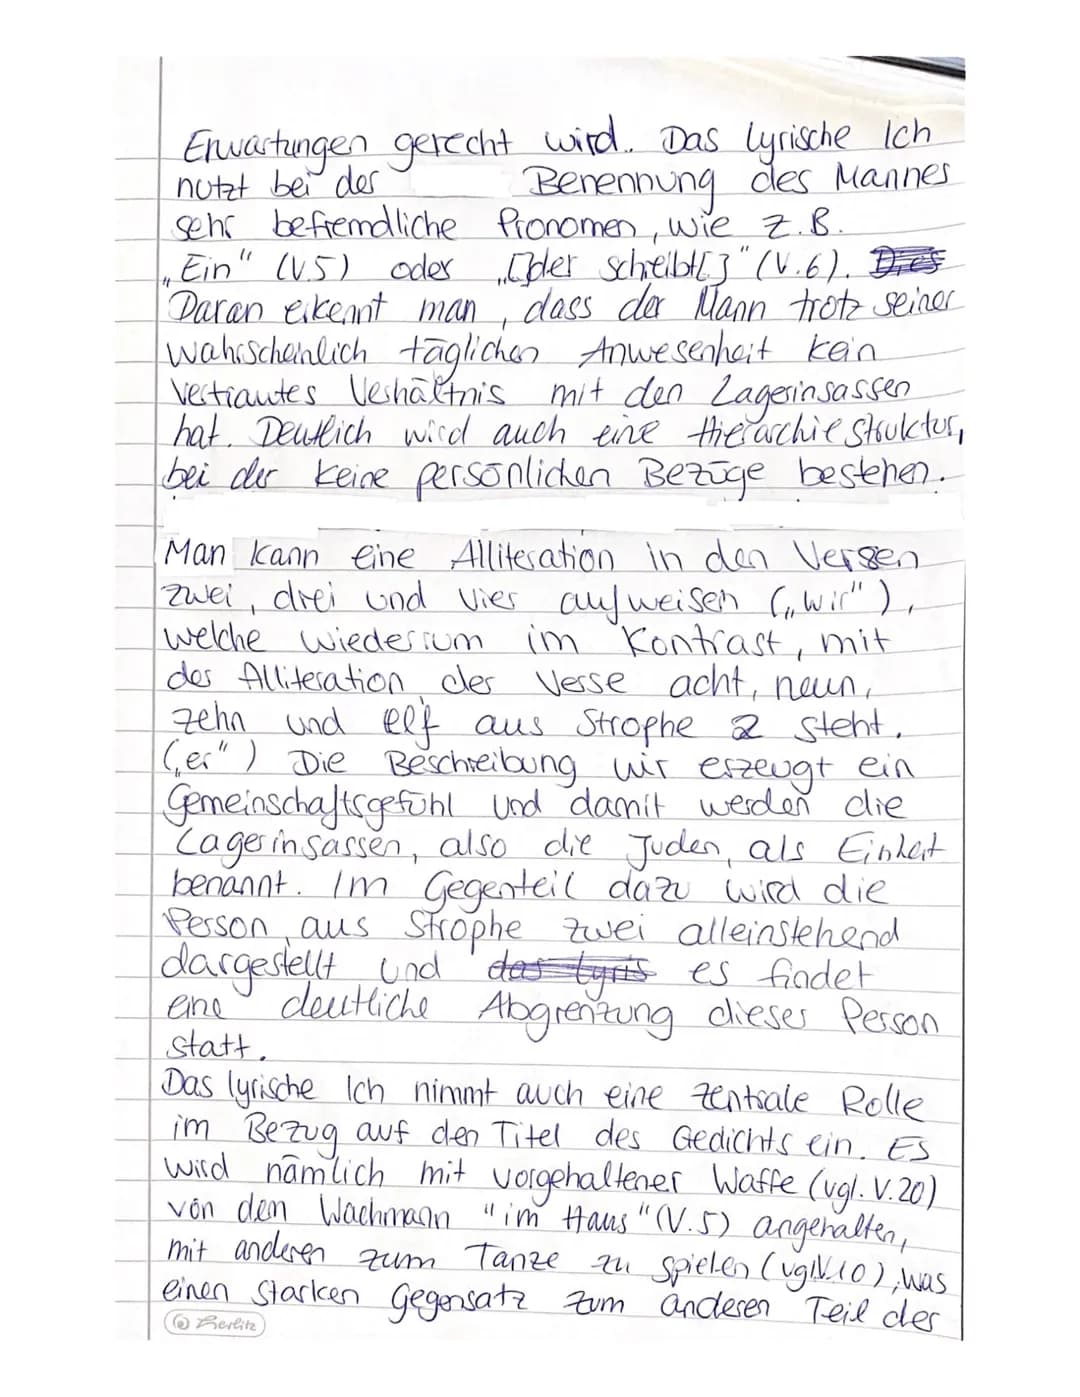 Erwartungen gerecht wird. Das lyrische Ich
nutzt bei der Benennung des Mannes
sehr befremdliche Pronomen, wie z.B.
„Ein" (V.5) oder „[]der schreibt[]" (V.6). Dies
Daran erkennt man, dass der Mann trotz seiner
wahrscheinlich täglichen Anwesenheit kein
vertrautes Verhältnis mit den Lagerinsassen
hat. Deutlich wird auch eine Hierarchiestruktur,
bei der keine persönlichen Bezüge bestehen.
Man kann eine Alliteration in den Versen
zwei, drei und vier aufweisen („wir"),
welche wiederrum im Kontrast, mit
der Alliteration der Verse acht, neun,
zehn und elf aus Strophe 2 steht.
(„er") Die Beschreibung wir erzeugt ein
Gemeinschaftsgefühl und damit werden die
Lagerinsassen, also die Juden, als Einheit
benannt. Im Gegenteil dazu wird die
Person aus Strophe zwei alleinstehend
dargestellt und das lyris es findet
eine deutliche Abgrenzung dieser Person
statt.
Das lyrische Ich nimmt auch eine zentrale Rolle
im Bezug auf den Titel des Gedichts ein. Es
wird nämlich mit vorgehaltener Waffe (vgl. V.20)
von dem Wachmann "im Haus" (V.5) angehalten,
mit anderen zum Tanze zu spielen (vgl.V.10), was
einen starken Gegensatz zum anderen Teil der
Herlitz